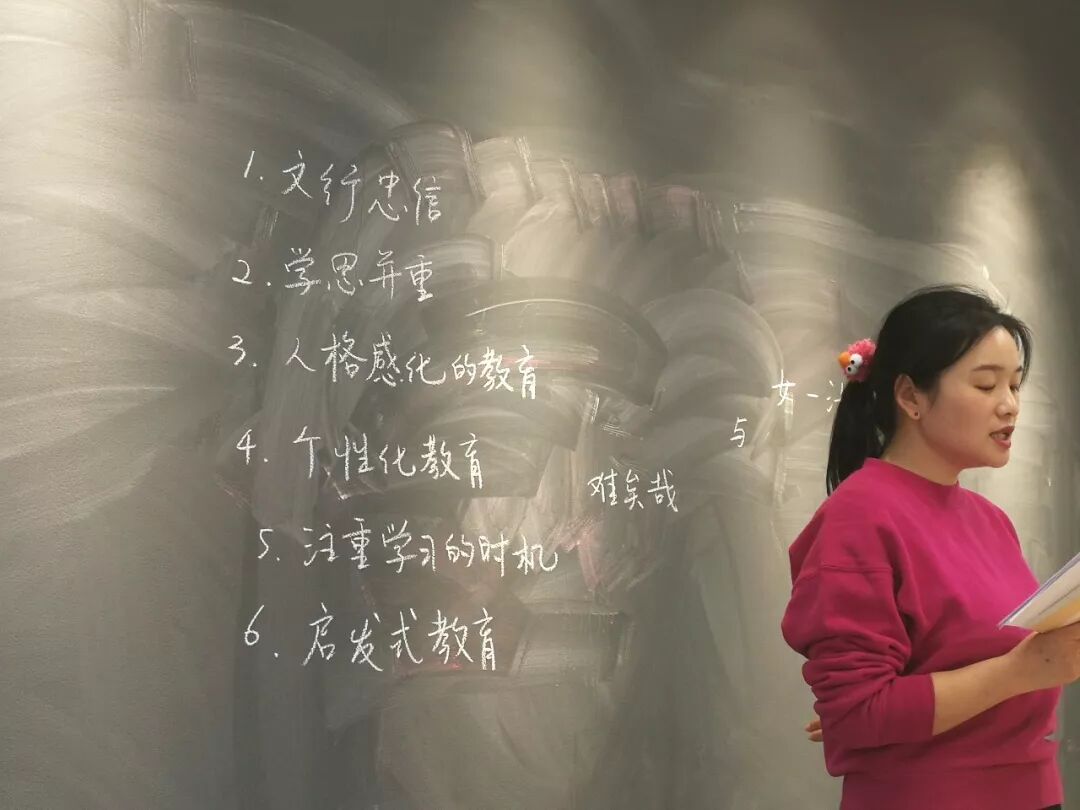 1. 文行忠信
2. 学思并重
3. 人格感化的教育
4. 个性化教育
5. 注重学习的时机
6. 启发式教育
女一
与
难矣哉